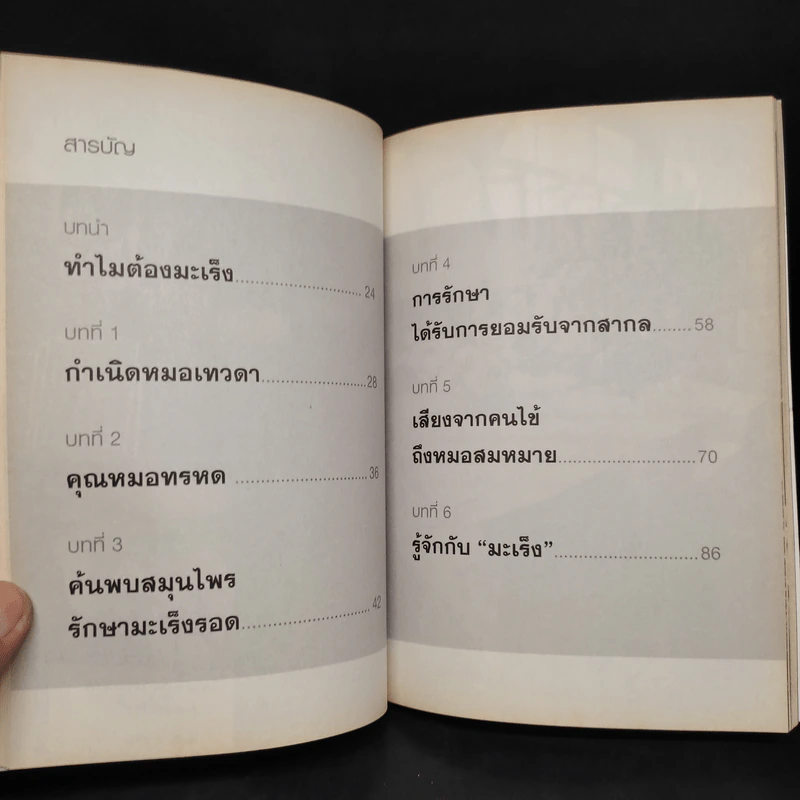 สารบัญ
บทนำ
ทำไมต้องมะเร็ง.............................. 24
บทที่ 1
กำเนิดหมอเทวดา.........................28
บทที่ 2
คุณหมอทรหด ..............................36
บทที่ 3
ค้นพบสมุนไพร
รักษามะเร็งรอด..............................42
บทที่ 4
การรักษา
ได้รับการยอมรับจากสากล........58
บทที่ 5
เสียงจากคนไข้
ถึงหมอสมหมาย............................70
บทที่ 6
รู้จักกับ “มะเร็ง”.............................86